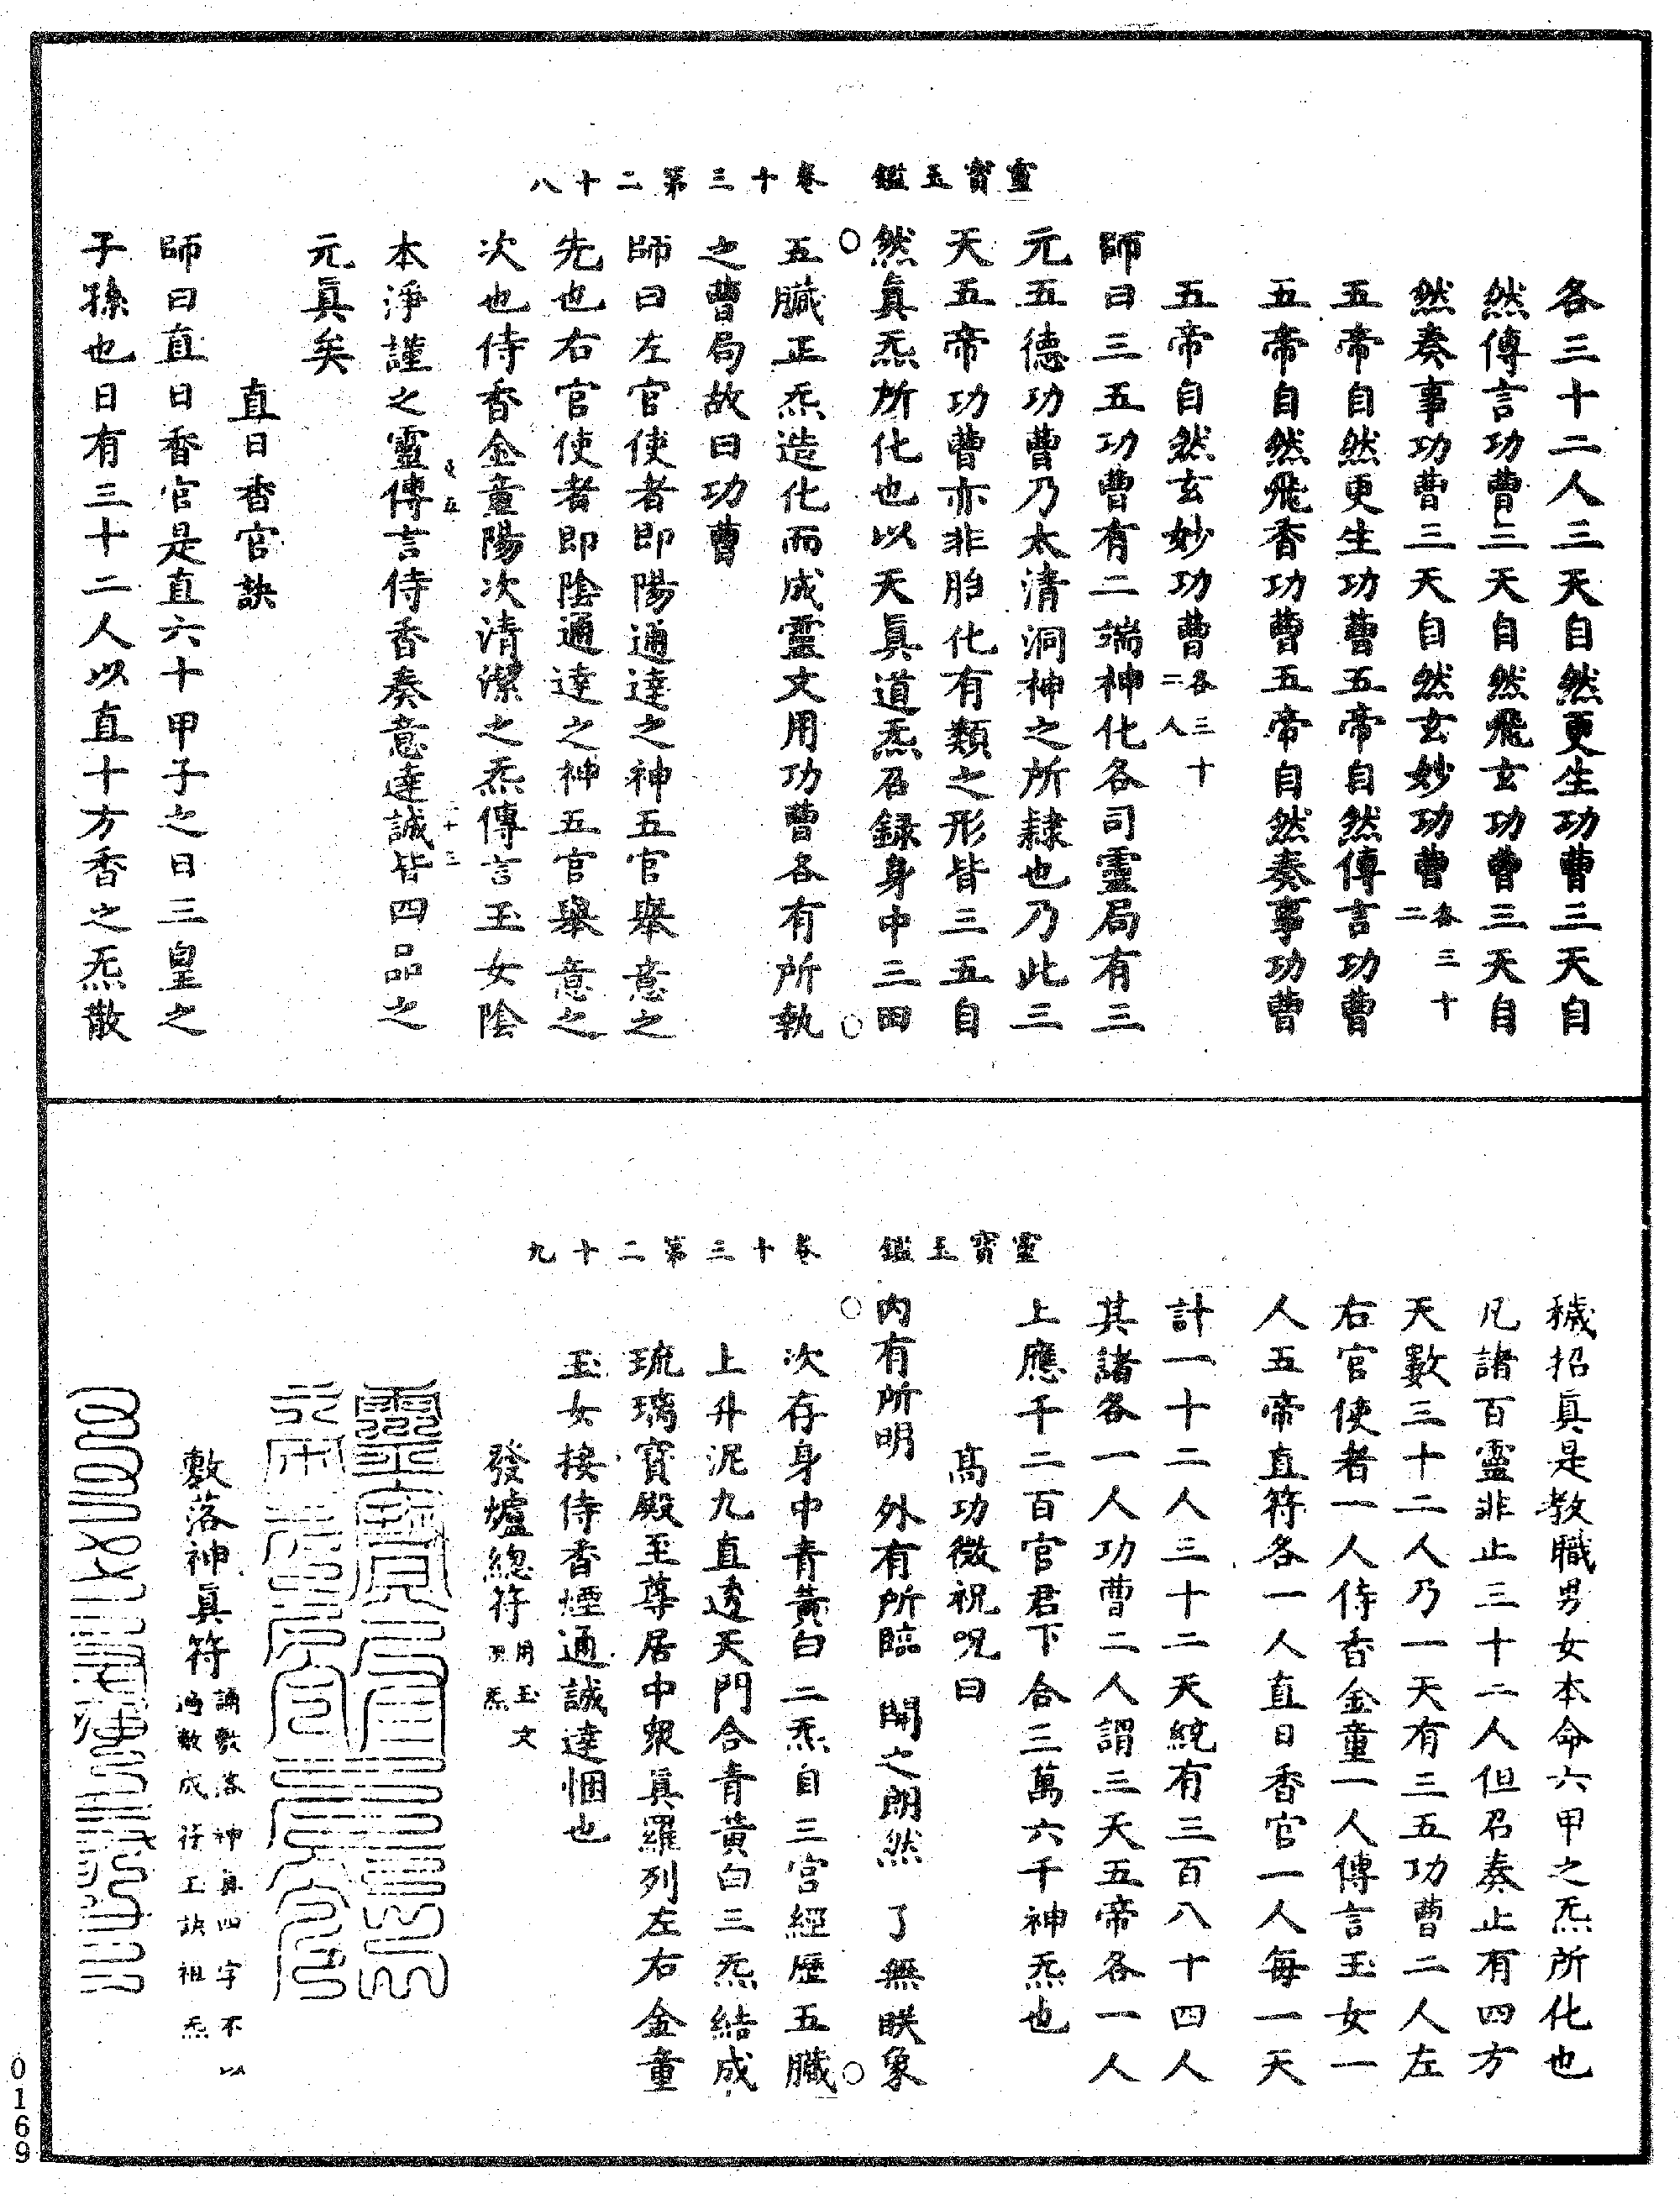 靈寶玉鑑　卷十三第二十八
各三十二人三天自然更生功曹三天自
然傳言功曹三天自然飛玄功曹三天自
然奏事功曹三天自然玄妙功曹各三十二
五帝自然更生功曹五帝自然傳言功曹
五帝自然飛香功曹五帝自然奏事功曹
五帝自然玄妙功曹各三十二人
師曰三五功曹有二端神化各司靈局有三
元五德功曹乃太清洞神之所隸也乃此三
天五帝功曹亦非胎化有類之形皆三五自
然眞炁所化也以天眞道炁召錄身中三田
五臟正炁造化而成靈文用功曹各有所執
之曹局故曰功曹
師曰左官使者即陽通達之神五官舉意之
先也右官使者即陰通達之神五官舉意之
次也侍香金童陽次清潔之炁傳言玉女陰
本淨謹之靈傳言侍香奏意達誠皆四品之
元眞矣
直日香官訣
師曰直日香官是直六十甲子之日三皇之
子孫也日有三十二人以直十方香之炁散
靈寶玉鑑　卷十三第二十九
穢招眞是教職男女本命六甲之炁所化也
凡諸百靈非止三十二人但召奏止有四方
天數三十二人乃一天有三五功曹二人左
右官使者一人侍香金童一人傳言玉女一
人五帝直符各一人直日香官一人每一天
計一十二人三十二天統有三百八十四人
其諸各一人功曹二人謂三天五帝各一人
上應千二百官君下合三萬六千神炁也
高功微祝呪曰
內有所明　外有所臨　開之朗然　了無眹象
次存身中青黃白二炁自三宮經歷五臟
上升泥九直透天門合青黃白三炁結成
琉璃寶殿至尊居中眾眞羅列左右金童
玉女接侍香煙通誠達悃也
發爐總符用玉文炁
敷落神眞符誦敷落神眞四字不以敷成符工訣祖炁
0169